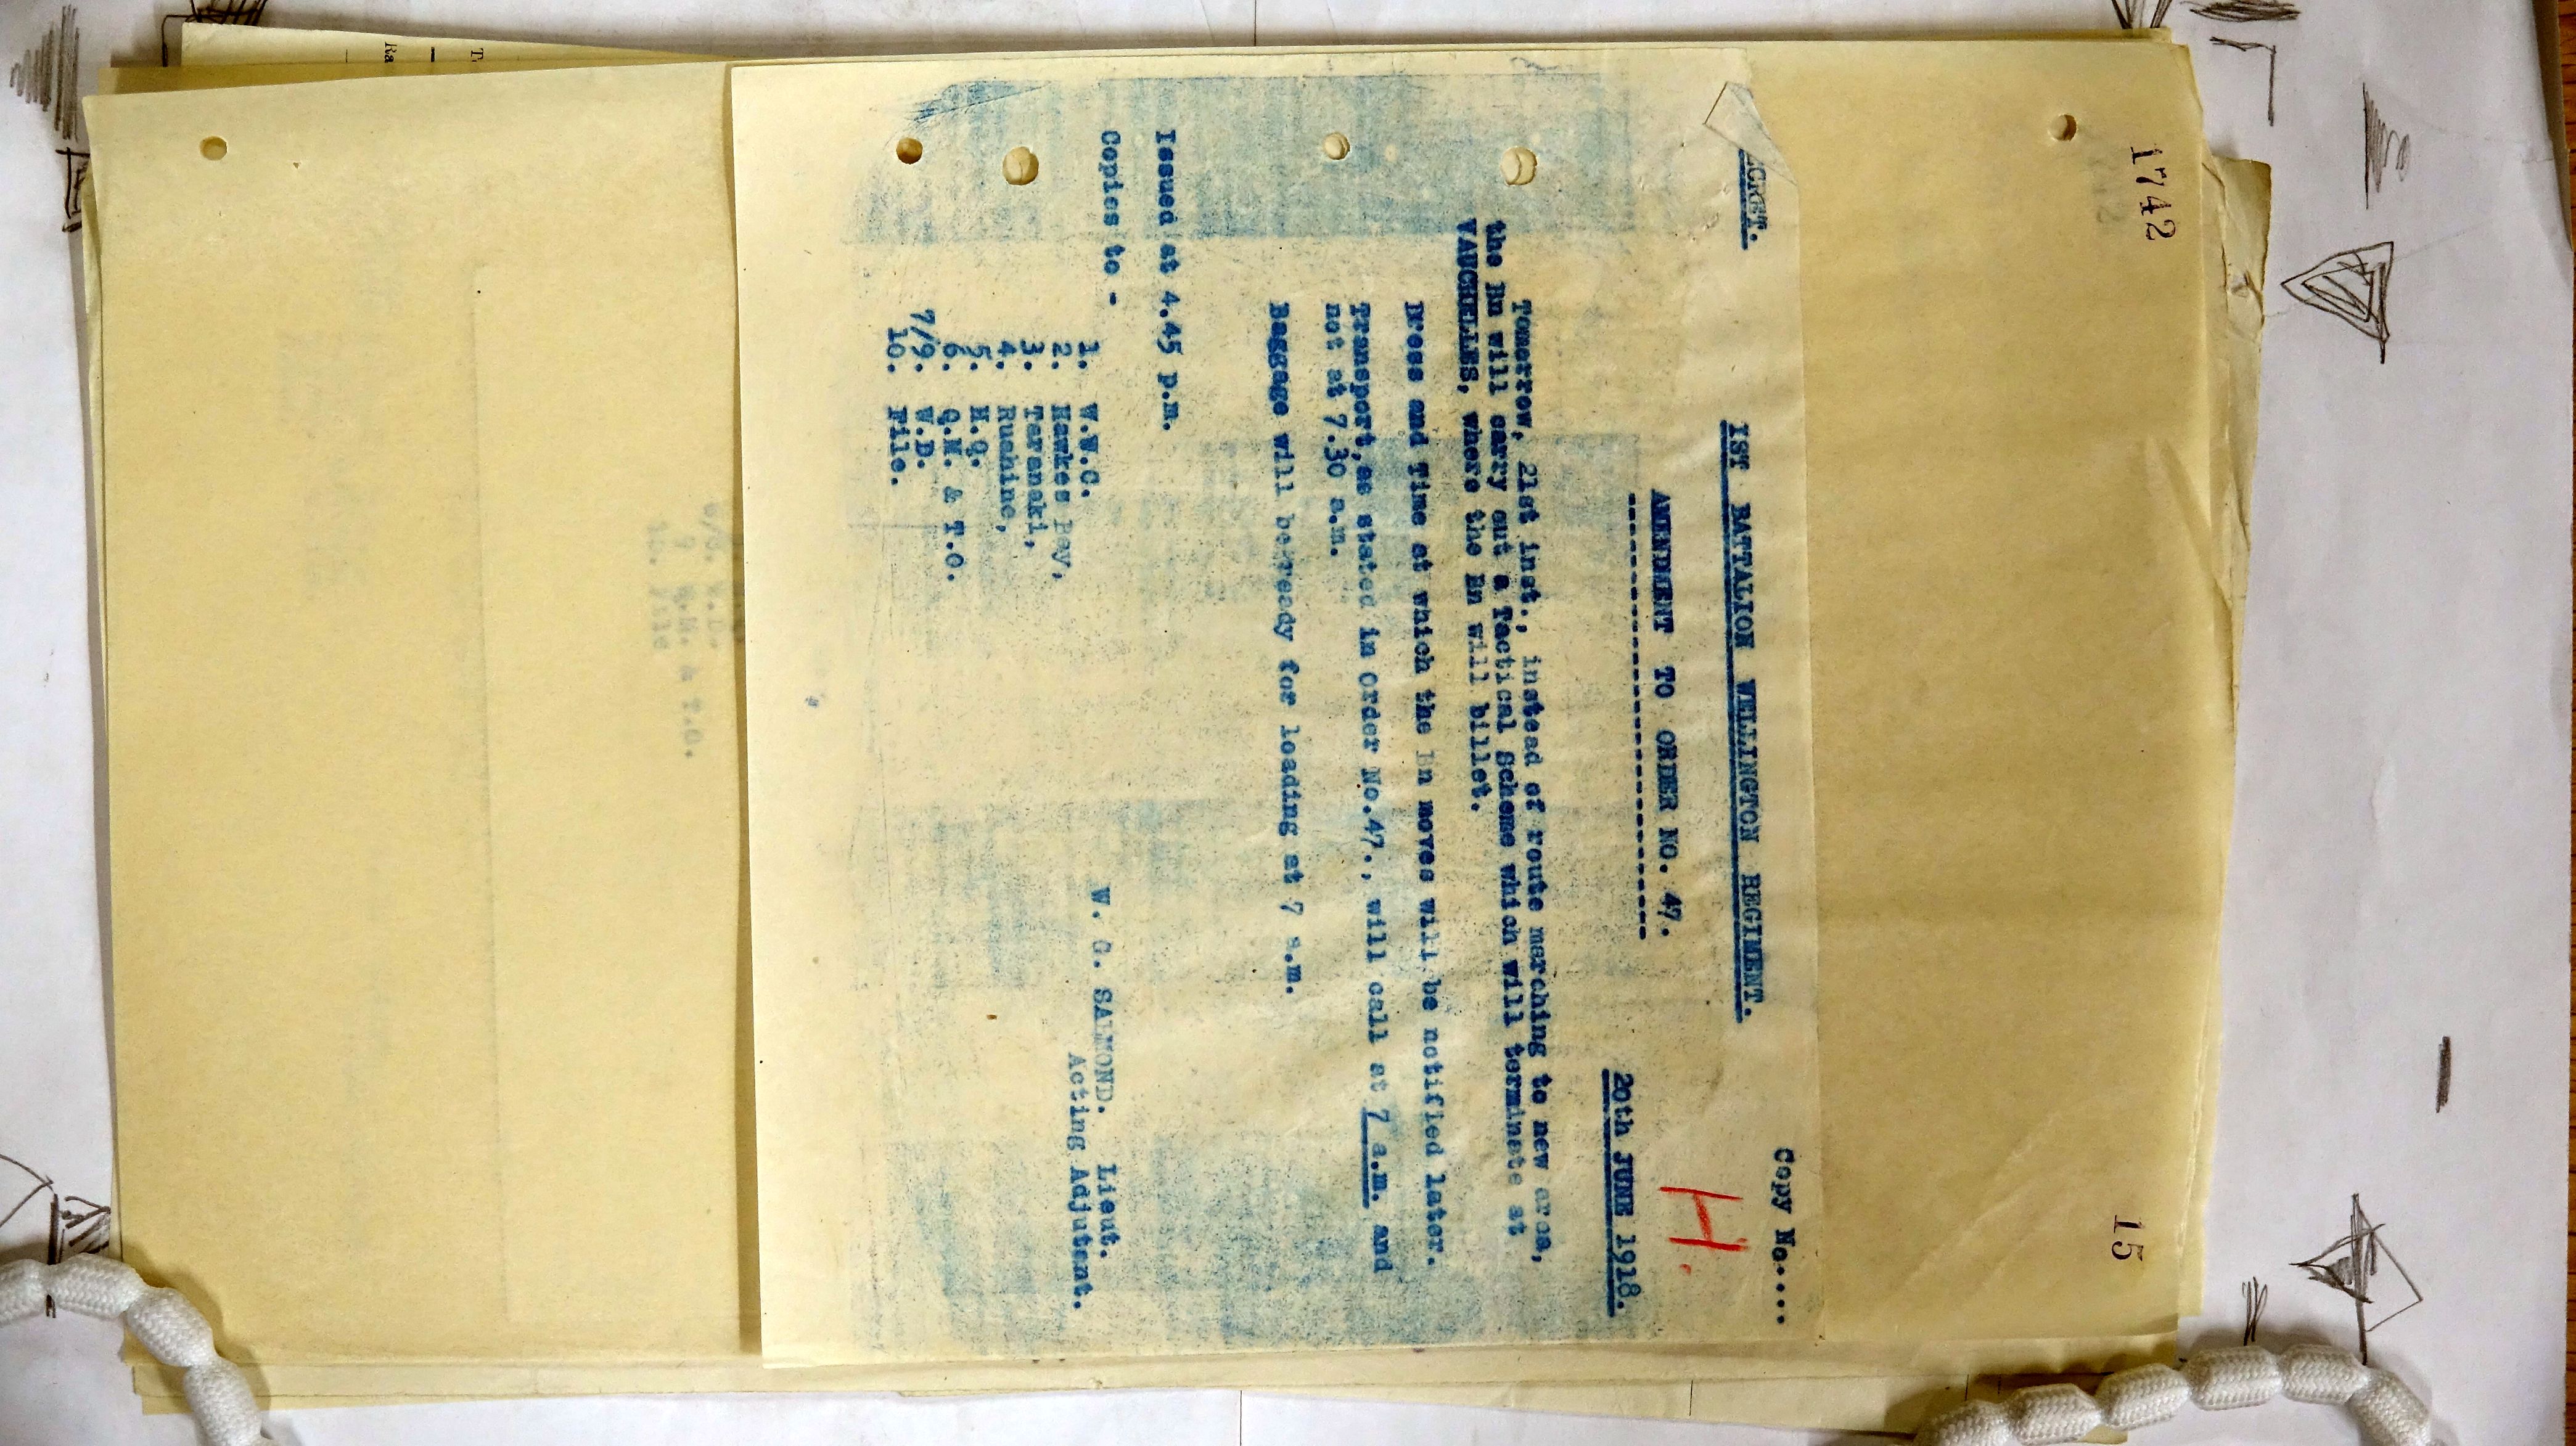 1742
15
Copy No.....
ECRET.
1ST BATTALION WELLINGTON REGIMENT.
H.
AMENDMENT TO ORDER NO. 47.
--------------------------
20th JUNE 1918.
Tomorrow, 21st inst., instead of route marching to new area,
the Bn will carry out a Tactical Scheme which will terminate at
VAUCHELLES, where the Bn will billet.
Dress and Time at which the Bn moves will be notified later.
Transport,as stated in Order No.47., will call at 7 a.m. and
not at 7.30 a.m.
Baggage will be ready for loading at 7 a.m.
Issued at 4.45 p.m.
W. G. SALMOND. Lieut.
Acting Adjutant.
Copies to -
1. W.W.C.
2. Hawkes Bay,
3. Taranaki,
4. Ruahine,
5. H.Q.
6. Q.M. & T.O.
7/9. W.D.
10. File.
Q.M. & T.O.
10. File